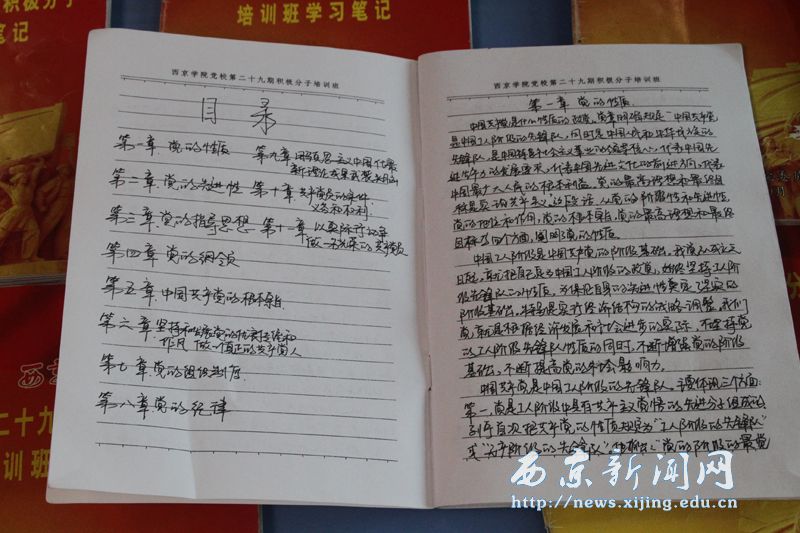 积极分子
培训班学习笔记
西京学院党校第二十九期积极分子培训班
目录
第一章 党的性质
第九章 用社会主义中国化最
新理论成果武装头脑
第二章 党的先进性
第十章 共产党员的条件
义务和权利
第三章 党的指导思想
第十一章 以实际行动争
做一名光荣的共产党员
第四章 党的纲领
第五章 中国共产党的根本宗旨
第六章 坚持和发展党的优良传统和
作风 做一个真正的共产党人
第七章 党的组织制度
第八章 党的纪律
西京学院党校第二十九期积极分子培训班
第一章 党的性质
中国共产党是什么性质的政党，党章明确规定"中国共产党
是中国工人阶级的先锋队，同时是中国人民和中华民族的
先锋队，是中国特色社会主义事业的领导核心，代表中国先
进生产力的发展要求，代表中国先进文化的前进方向，代表
中国最广大人民的根本利益。党的最高理想和最终目
标是实现共产主义。这段话，从党的阶级性和先进性，
党的地位和作用，党的根本宗旨，党的最高理想和最终
目标等四个方面，阐明党的性质。
中国工人阶级是中国共产党的阶级基础。我党从成立之
日起，就把自己定为中国工人阶级的政党，始终坚持工人阶
级先锋队的性质，
阶级基础，特别是实行经济结构的战略调整，我们
党就是根据经济发展和社会进步的实际，不坚持党
的工人阶级先锋队性质的同时，不断增强党的阶级
基础，不断提高党的社会影响力。
中国共产党是中国工人阶级的先锋队，该体现三个方面：
第一，党是工人阶级中具有共产主义觉悟的先进分子组成的。
列宁首次把共产党的性质规定为"工人阶级的先锋队"
或"无产阶级的先锋队"
二十九
培训班
西京新闻网
http://news.xijing.edu.cn